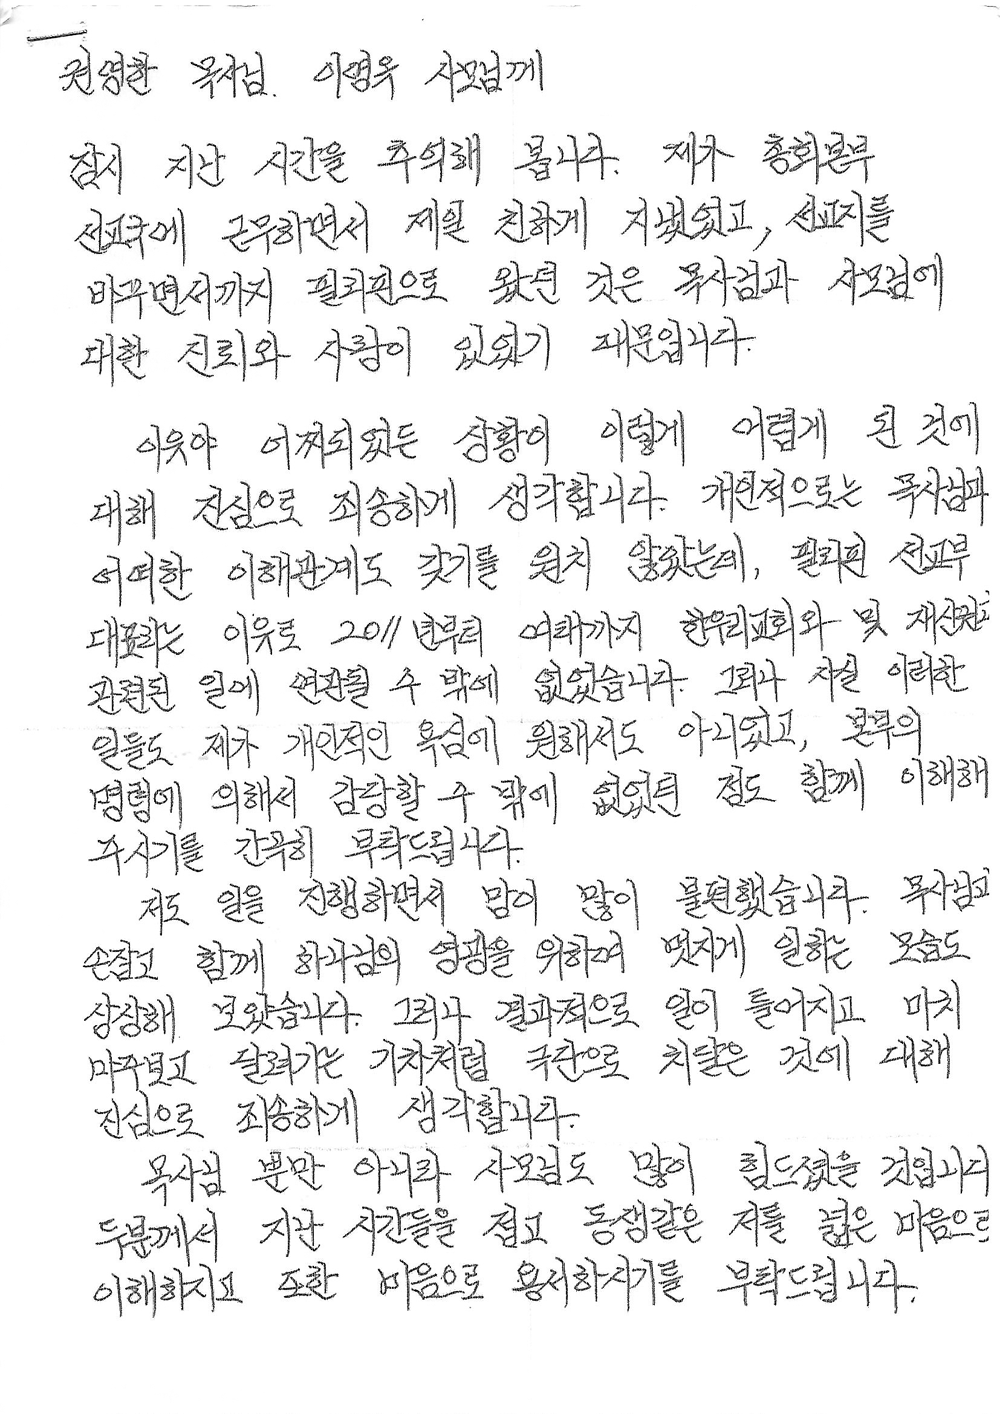 권영한 목사님. 이영옥 사모님께
잠시 지난 시간을 추억해 봅니다. 제가 총회본부
선교국에 근무하면서 제일 친하게 지냈었고, 선교지를
바꾸면서까지 필리핀으로 왔던 것은 목사님과 사모님에
대한 신뢰와 사랑이 있었기 때문입니다.
이유야 어찌되었든 상황이 이렇게 어렵게 된 것에
대해 진심으로 죄송하게 생각합니다. 개인적으로는 목사님과
어떠한 이해관계도 갖기를 원치 않았는데, 필리핀 선교부
대표라는 이유로 2011년부터 여태까지 한우리교회와 및 재산권과
관련된 일에 연관될 수 밖에 없었습니다. 그러나 사실 이러한
일들도 제가 개인적인 욕심에 원해서도 아니었고, 본부의
명령에 의해서 감당할 수 밖에 없었던 점도 함께 이해해
주시기를 간곡히 부탁드립니다.
저도 일을 진행하면서 맘이 많이 불편했습니다. 목사님과
손잡고 함께 하나님의 영광을 위하여 멋지게 일하는 모습도
상상해 보았습니다. 그러나 결과적으로 일이 틀어지고 마치
마주보고 달려가는 기차처럼 극단으로 치달은 것에 대해
진심으로 죄송하게 생각합니다.
목사님 뿐만 아니라 사모님도 많이 힘드셨을 것입니다
두분께서 지난 시간들을 접고 동생같은 저를 넓은 마음으로
이해하시고 또한 마음으로 용서하시기를 부탁드립니다.